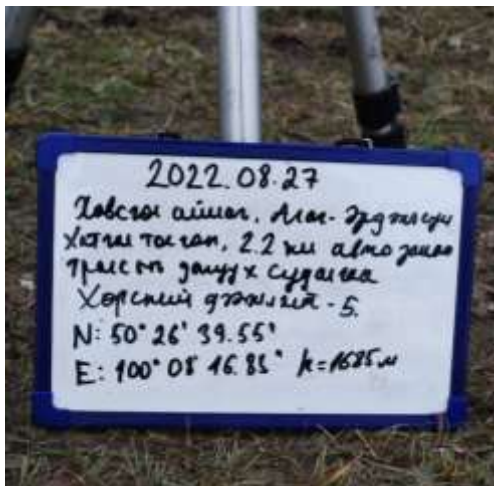 2022.08.27
Ховсгол аймаг, Алаг-Эрдэнэ сум
Хатгал тосгон, 2.2 км авто зам
дагуух судалгаа
Хөрсний дээжлэлт - 5.
N: 50° 26' 39.55"
E: 100° 08 16.85" h=1685 м